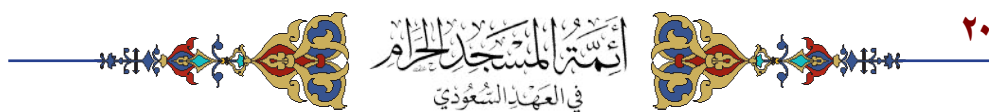 ٢٠
أئمة المسجد الحرام
في العهد السعودي